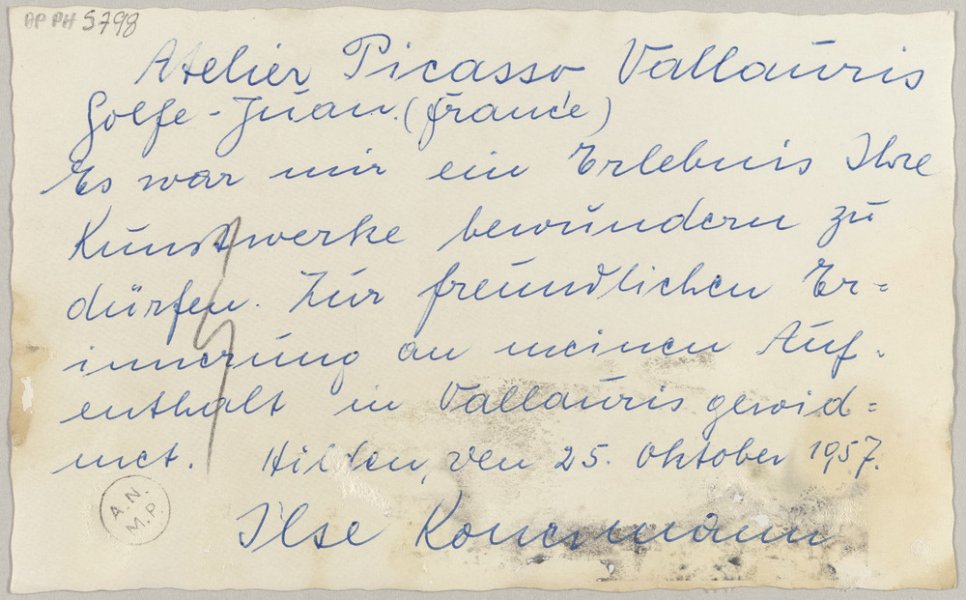 DP PH 5798
Atelier Picasso Vallauris
Golfe-Juan. (France)
Es war mir ein Erlebnis Ihre
Kunstwerke bewundern zu
dürfen. Zur freundlichen Er=
innerung an meinen Auf=
enthalt in Vallauris gewid=
met. Hilden, den 25. Oktober 1957.
A.N.
M.P.
Ilse